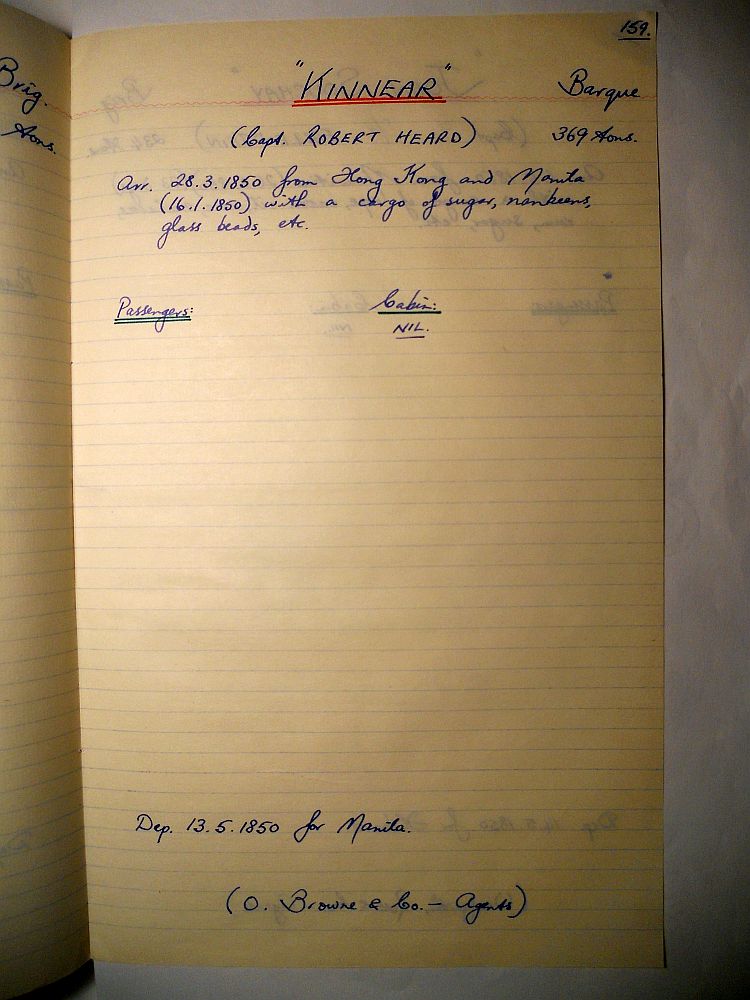 159.
"KINNEAR" Barque
(Capt. ROBERT HEARD) 369 tons.
Arr. 28.3.1850 from Hong Kong and Manila
(16.1.1850) with a cargo of sugar, nankeens,
glass beads, etc.
Passengers: Cabin:
NIL.
Dep. 13.5.1850 for Manila.
(O. Browne & Co. - Agents)
Brig.
tons.